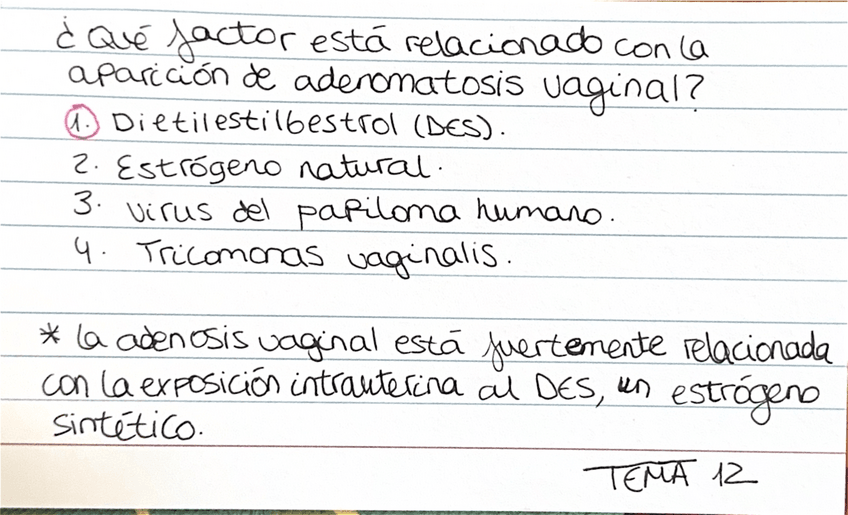 ¿Qué factor está relacionado con la
aparición de adenomatosis vaginal?
1. Dietilestilbestrol (DES).
2. Estrógeno natural.
3. Virus del papiloma humano.
4. Tricomonas vaginalis.
* La adenosis vaginal está fuertemente relacionada
con la exposición intrauterina al DES, un estrógeno
sintético.
TEMA 12